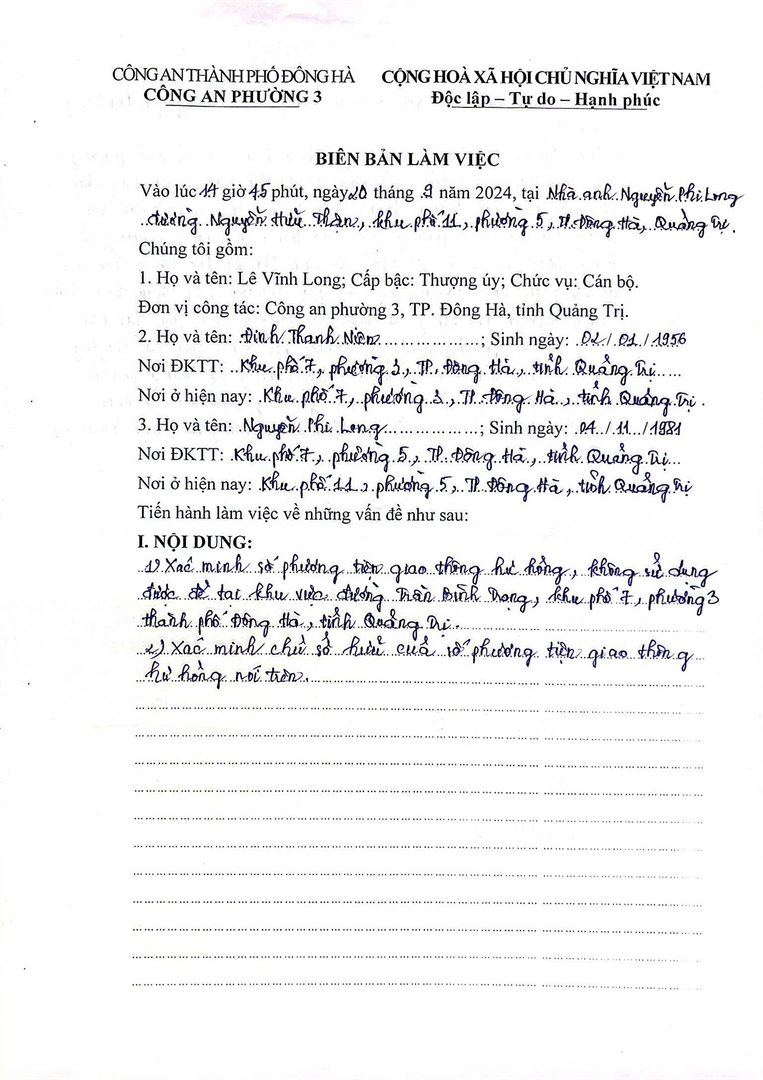 CÔNG AN THÀNH PHỐ ĐÔNG HÀ CỘNG HOÀ XÃ HỘI CHỦ NGHĨA VIỆT NAM
CÔNG AN PHƯỜNG 3 Độc lập – Tự do – Hạnh phúc
BIÊN BẢN LÀM VIỆC
Vào lúc 14 giờ 45 phút, ngày 20 tháng 9 năm 2024, tại Nhà anh Nguyễn Phi Long
đường Nguyễn Hữu Thận, khu phố 11, phường 5, TP. Đông Hà, Quảng Trị.
Chúng tôi gồm:
1. Họ và tên: Lê Vĩnh Long; Cấp bậc: Thượng úy; Chức vụ: Cán bộ.
Đơn vị công tác: Công an phường 3, TP. Đông Hà, tỉnh Quảng Trị.
2. Họ và tên: Đinh Thanh Niên ; Sinh ngày: 02/01/1956
Nơi ĐKTT: Khu phố 7, phường 3, TP. Đông Hà, tỉnh Quảng Trị
Nơi ở hiện nay: Khu phố 7, phường 3, TP. Đông Hà, tỉnh Quảng Trị.
3. Họ và tên: Nguyễn Phi Long ; Sinh ngày: 04/11/1981
Nơi ĐKTT: Khu phố 7, phường 5, TP. Đông Hà, tỉnh Quảng Trị
Nơi ở hiện nay: Khu phố 11, phường 5, TP. Đông Hà, tỉnh Quảng Trị
Tiến hành làm việc về những vấn đề như sau:
I. NỘI DUNG:
1) Xác minh số phương tiện giao thông hư hỏng, không sử dụng
được để tại khu vực đường Trần Bình Trọng, khu phố 7, phường 3
thành phố Đông Hà, tỉnh Quảng Trị.
2) Xác minh chủ sở hữu của số phương tiện giao thông
hư hỏng nói trên.